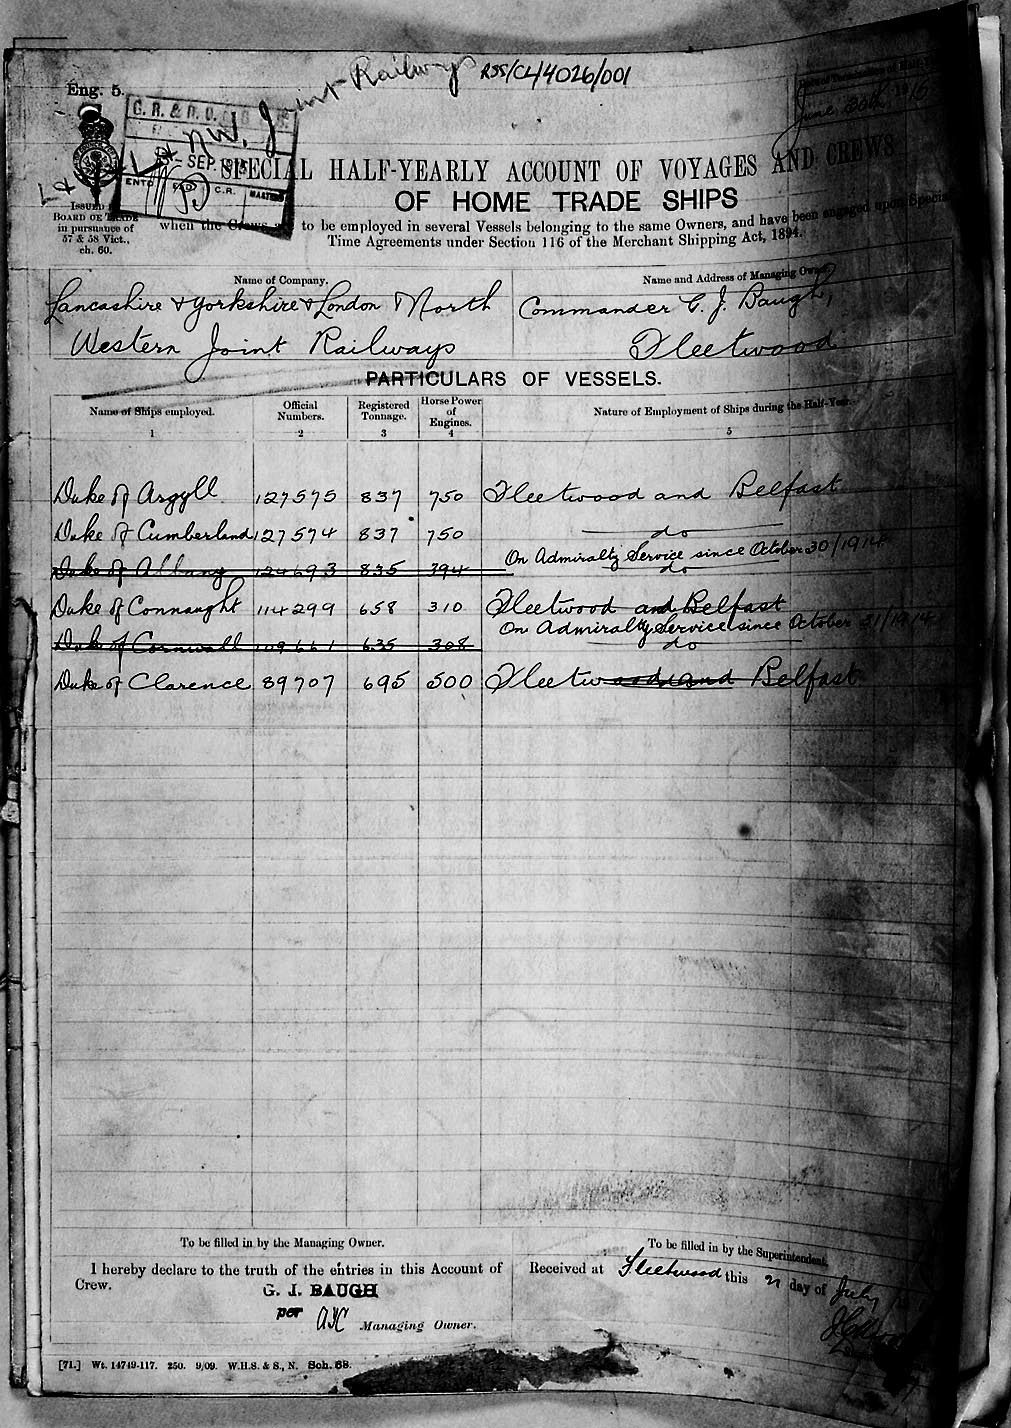 L & N.W. Joint Railways RSS/CL/4026/001
Eng. 5.
June 30th 1915
SEP.
C.R.
SPECIAL HALF-YEARLY ACCOUNT OF VOYAGES AND CREWS
OF HOME TRADE SHIPS
ISSUED
BOARD OF TRADE
in pursuance of
57 & 58 Vict.,
ch. 60.
when the Crews to be employed in several Vessels belonging to the same Owners, and have been engaged upon Special
Time Agreements under Section 116 of the Merchant Shipping Act, 1894.
Name of Company. Name and Address of Managing Owner.
Lancashire & Yorkshire & London & North Commander G. J. Baugh,
Western Joint Railways Fleetwood
PARTICULARS OF VESSELS.
Name of Ships employed. Official Numbers. Registered Tonnage. Horse Power of Engines. Nature of Employment of Ships during the Half-Year.
1 2 3 4 5
Duke of Argyll 127575 837 750 Fleetwood and Belfast
Duke of Cumberland 127574 837 750 do
On Admiralty Service since October 30/1914
Duke of Albany 124693 835 394 do
Duke of Connaught 114299 658 310 Fleetwood and Belfast
On Admiralty Service since October 31/1914
Duke of Cornwall 109661 635 308 do
Duke of Clarence 89707 695 500 Fleetwood and Belfast
To be filled in by the Managing Owner. To be filled in by the Superintendent.
I hereby declare to the truth of the entries in this Account of Crew. Received at Fleetwood this 21 day of July
G. J. BAUGH
per
Managing Owner.
[71.] Wt. 14749-117. 250. 9/09. W.H.S. & S., N. Sch. 68.